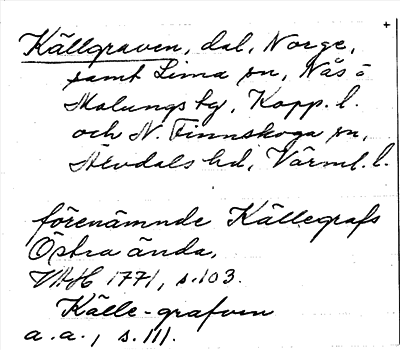 +
Källgraven, dal, Norge,
samt Lima sn, Nås o
Malungs tg, Kopp. l.
och N. Finnskoga sn,
Älvdals hd, Värml. l.
förenämnde Källegrafs
Östra ända,
VAH 1771, s. 103.
Källe-grafven
a. a., s. 111.